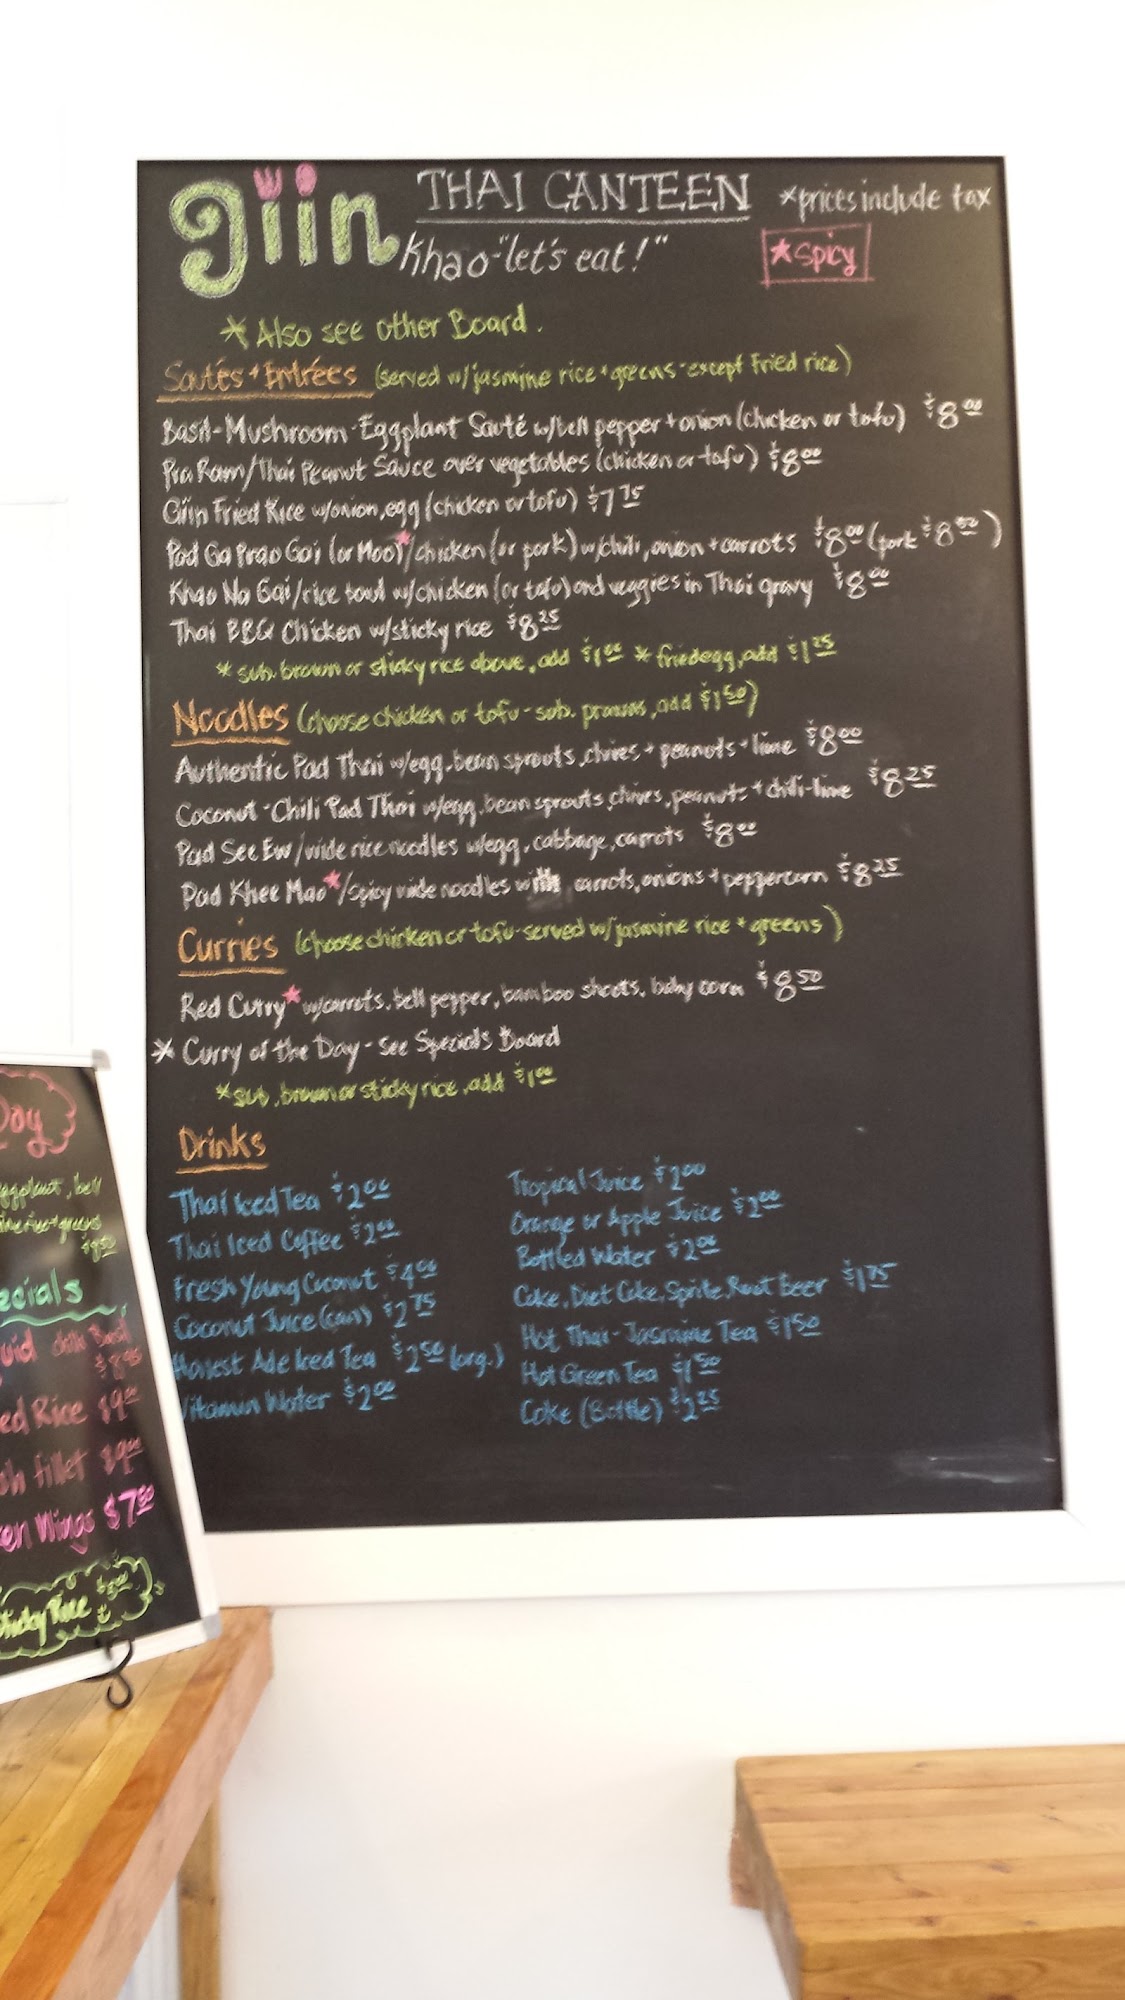 giin THAI CANTEEN *prices include tax
Khao-"let's eat!" *spicy
*Also see other Board.
Sautés + Entrées (served w/jasmine rice + greens-except Fried rice)
Basil-Mushroom-Eggplant Sauté w/bell pepper + onion (chicken or tofu) $8.00
Pra Ram/Thai Peanut Sauce over vegetables (chicken or tofu) $8.00
Giin Fried Rice w/onion, egg (chicken or tofu) $7.75
Pad Ga Prao Gai (or Moo)*/chicken (or pork) w/chili, onion + carrots $8.00 (pork )
Khao Na Gai/rice bowl w/chicken (or tofu) and veggies in Thai gravy $8.00
Thai BBQ Chicken w/sticky rice $8.25
*sub. brown or sticky rice above, add $1.00 *fried egg, add $1.25
Noodles (choose chicken or tofu-sub. prawns, add $1.50)
Authentic Pad Thai w/egg, bean sprouts, chives + peanuts + lime $8.00
Coconut-Chili Pad Thai w/egg, bean sprouts, chives, peanuts + chili-lime $8.25
Pad See Ew/wide rice noodles w/egg, cabbage, carrots $8.00
Pad Khee Mao*/spicy wide noodles with carrots, onions + peppercorn $8.25
Curries (choose chicken or tofu-served w/jasmine rice + greens)
Red Curry* w/carrots, bell pepper, bamboo shoots, baby corn $8.50
*Curry of the Day-see Specials Board
*sub. brown or sticky rice, add $1.00
Drinks
Thai Iced Tea $2.00
Thai Iced Coffee $2.00
Fresh Young Coconut $4.00
Coconut Juice (can) $2.75
Honest Ade Iced Tea $2.50 (org.)
Vitamin Water $2.00
Tropical Juice $2.00
Orange or Apple Juice $2.00
Bottled Water $2.00
Coke, Diet Coke, Sprite, Root Beer $1.75
Hot Thai-Jasmine Tea $1.50
Hot Green Tea $1.50
Coke (Bottle) $2.25
Day
eggplant, bell
rice + greens
$8.50
ecials
uid Basil
$8.95
ed Rice $9.00
sh fillet $9.00
ken Wings $7.50
Sticky Rice